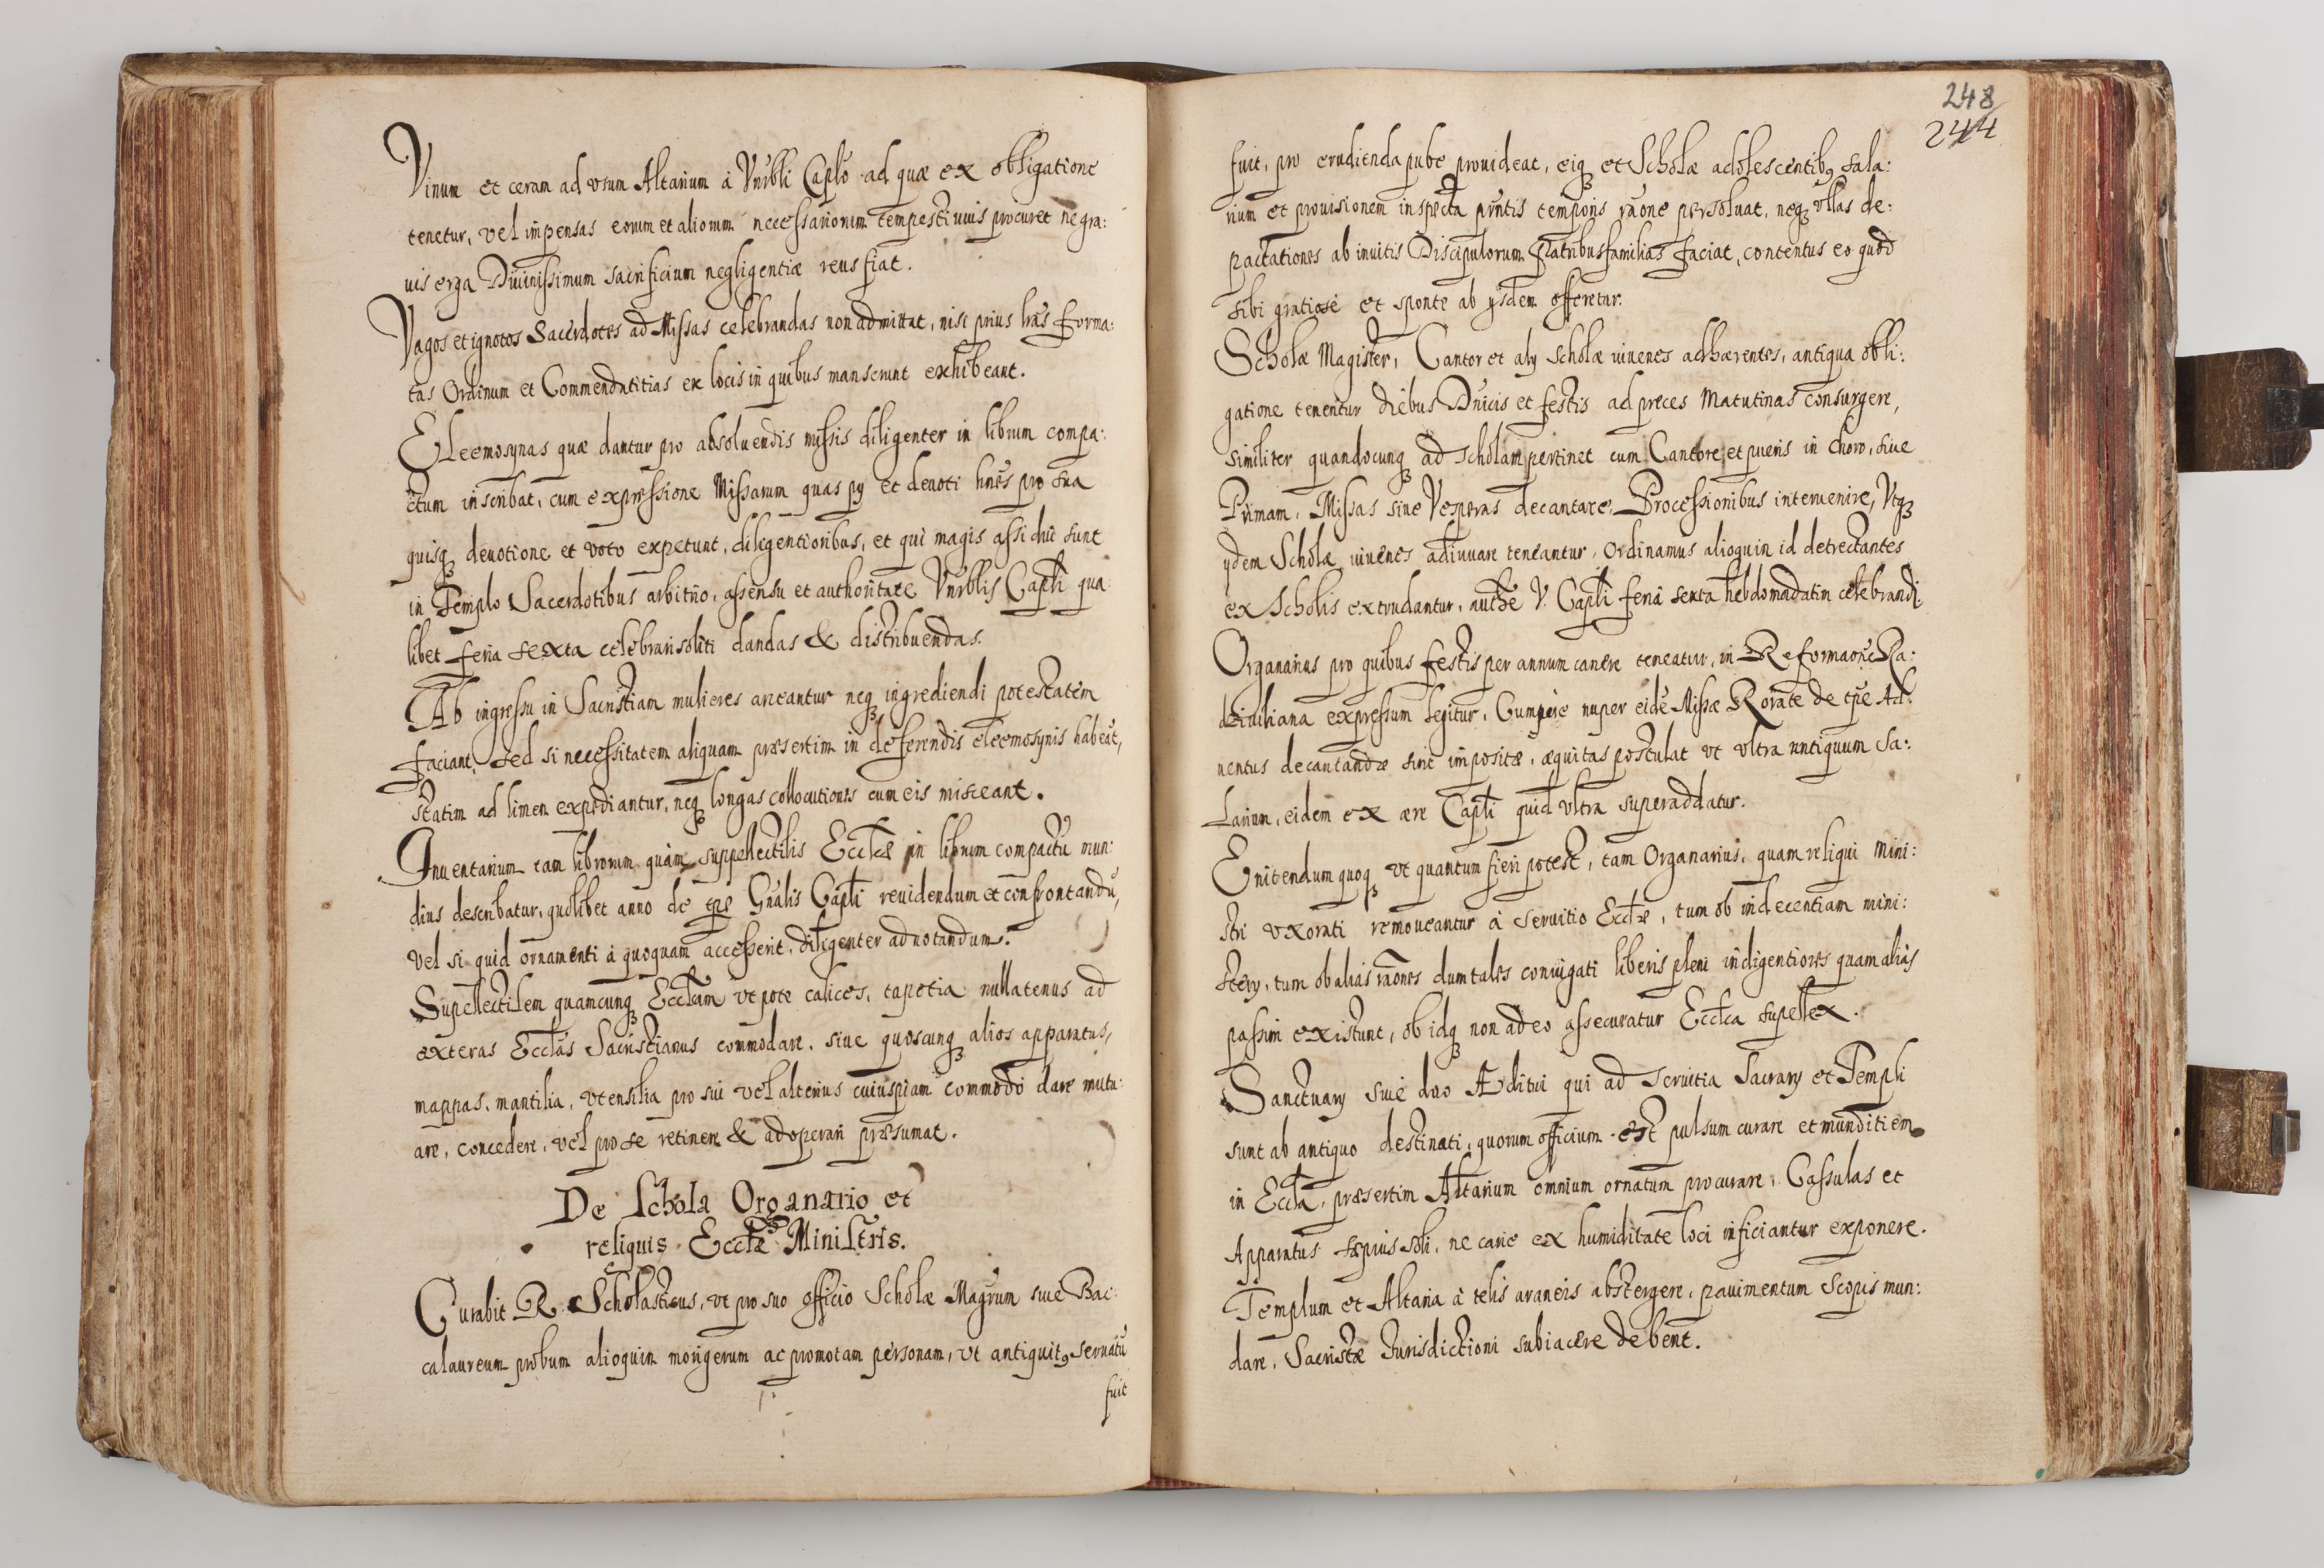 Vinum et ceram ad vsum Altarium à Vnrbli Caplo ad quæ ex obligatione
tenetur, vel impensas eorum et aliorum necessariorum tempestiuius procuret ne gra:
uis erga Diuinissimum sacrificium negligentiæ reus fiat.
Vagos et ignotos Sacerdotes ad Missas celebrandas non admittat, nisi prius lras forma:
tas Ordinum et Commendatitias ex locis in quibus manserunt exhibeant.
Eleemosynas quæ dantur pro absoluendis missis diligenter in librum compa:
ctum inscribat, cum expressione Missarum quas pij et deuoti hnes pro sua
quisq deuotione et voto expetunt, diligentioribus, et qui magis assidui sunt
in Templo Sacerdotibus arbitrio, assensu et authoritate Vnrblis Capli qua
libet feria sexta celebrari soliti dandas & distribuendas.
Ab ingressu in Sacristiam mulieres arceantur neq ingrediendi potestatem
faciant, sed si necessitatem aliquam præsertim in deferendis eleemosynis habeāt,
statim ad limen expediantur, neq longas collocutiones cum eis misceant.
Inuentarium tam librorum quàm suppellectilis Eccliæ in librum compactū mun:
dius describatur, quolibet anno de tpe Gnalis Capli reuidendum et confrontandū,
vel si quid ornamenti à quoquam accesserit, diligenter adnotandum.
Supellectilem quamcunq Ecclcam vt pote calices, tapetia nullatenus ad
exteras Ecclas Sacristianus commodare, siue quoscunq alios apparatus,
mappas, mantilia, vtensilia pro sui vel alterius cuiuspiam commodo dare mutu:
are, concedere, vel pro se retinere & ad operari præsumat.
De Schola Organario et
reliquis Ecclæ Ministris.
Curabit R. Scholasticus, vt pro suo officio Scholæ Magrum siue Bac:
calaureum probum alioquin morigerum ac promotam personam, vt antiquitꝰ seruatū
fuit
248
244
fuit, pro erudienda pube prouideat, eiq et Scholæ adolescentibꝰ sala:
rium et prouisionem inspecta prntis temporis raone persoluat, neq vllas de:
pactationes ab inuitis Discipulorum Patribusfamilias faciat, contentus eo quod
sibi gratiosè et sponte ab ijsdem offeretur.
Scholæ Magister, Cantor et alij scholæ iuuenes adhærentes, antiqua obli:
gatione tenentur diebus Dnicis et festis ad preces Matutinas consurgere,
similiter quandocunq ad scholam pertinet cum Cantore et pueris in choro, siue
Primam, Missas siue Vesperas decantare, Processionibus interuenire, Vtq
ijdem Scholæ iuuenes adiuuare teneantur, Ordinamus alioquin id detrectantes
ex Scholis extrudantur, authe V. Capli feria sexta hebdomadatim celebrandi.
Organarius pro quibus festis per annum canere teneatur, in Reformaone Ra:
dziuiliana expressum legitur, Cumque nuper eidē Missæ Rorate de tpe Ad:
uentus decantandæ sint impositæ, æquitas postulat vt vltra antiquum Sa:
larium, eidem ex ære Capli quid vltra superaddatur.
Enitendum quoq vt quantum fieri potest, tam Organarius, quam reliqui Mini:
stri vxorati remoueantur à seruitio Ecclæ, tum ob indecentiam mini:
sterij, tum ob alias raones dum tales coniugati liberis pleni indigentiores quam aliàs
passim existunt, ob idq non adeo assecuratur Ecclca supellex.
Sanctuarij siue duo Æditui qui ad seruitia Sacrarij et Templi
sunt ab antiquo destinati, quorum officium est pulsum curare et munditiem
in Eccla, præsertim Altarium omnium ornatum procurare, Cassulas et
Apparatus sæpius soli, ne carie ex humiditate loci inficiantur exponere.
Templum et Altaria à telis araneis abstergere, pauimentum Scopis mun:
dare, Sacristæ Iurisdictioni subiacere debent.